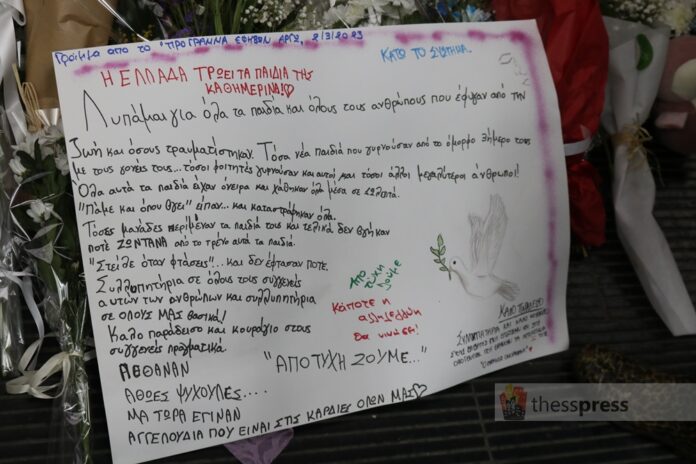 Γράμμα από το "ΠΡΟΓΡΑΜΜΑ ΕΦΗΒΩΝ ΑΡΓΩ, 2/3/2023
ΚΑΤΩ ΤΟ ΣΥΣΤΗΜΑ.
Η ΕΛΛΑΔΑ ΤΡΩΕΙ ΤΑ ΠΑΙΔΙΑ ΤΗΣ
ΚΑΘΗΜΕΡΙΝΑ!♡
Λυπάμαι για όλα τα παιδιά και όλους τους ανθρώπους που έφυγαν από την
ζωή και όσους τραυματίστηκαν. Τόσα νέα παιδιά που γυρνούσαν από το όμορφο 3ήμερο τους
με τους γονείς τους...τόσοι φοιτητές γυρνούσαν και αυτοί και τόσοι άλλοι μεγαλύτεροι άνθρωποι!
Όλα αυτά τα παιδιά είχαν όνειρα και χάθηκαν όλα μέσα σε λεπτά.
"Πάμε και όπου βγει" είπαν... και καταστράφηκαν όλα.
Τόσες μανάδες περίμεναν τα παιδιά τους και τελικά δεν βγήκαν
ΠΟΤΕ ΖΩΝΤΑΝΑ από το τρένο αυτά τα παιδιά.
"Στείλε όταν φτάσεις"... και δεν έφτασαν ποτέ.
Συλλυπητήρια σε όλους τους συγγενείς
αυτών των ανθρώπων και συλλυπητήρια
σε ΟΛΟΥΣ ΜΑΣ βασικά!
Καλό παράδεισο και κουράγιο στους
συγγενείς πραγματικά.
ΑΠΟ
ΤΥΧΗ
ΖΟΥΜΕ
ΚΑΠΟΤΕ Η
ΑΛΛΗΛΕΓΓΥΗ
ΘΑ ΝΙΚΗΣΕΙ!
"ΑΠΟ ΤΥΧΗ ΖΟΥΜΕ..."
ΑΘΩΕΣ ΨΥΧΟΥΛΕΣ....
ΜΑ ΤΩΡΑ ΕΓΙΝΑΝ
ΑΓΓΕΛΟΥΔΙΑ ΠΟΥ ΕΙΝΑΙ ΣΤΙΣ ΚΑΡΔΙΕΣ ΟΛΩΝ ΜΑΣ♡
ΚΑΛΟ ΠΑΡΑΔΕΙΣΟ
ΣΥΛΛΥΠΗΤΗΡΙΑ ΚΑΙ ΚΑΛΟ
thesspress